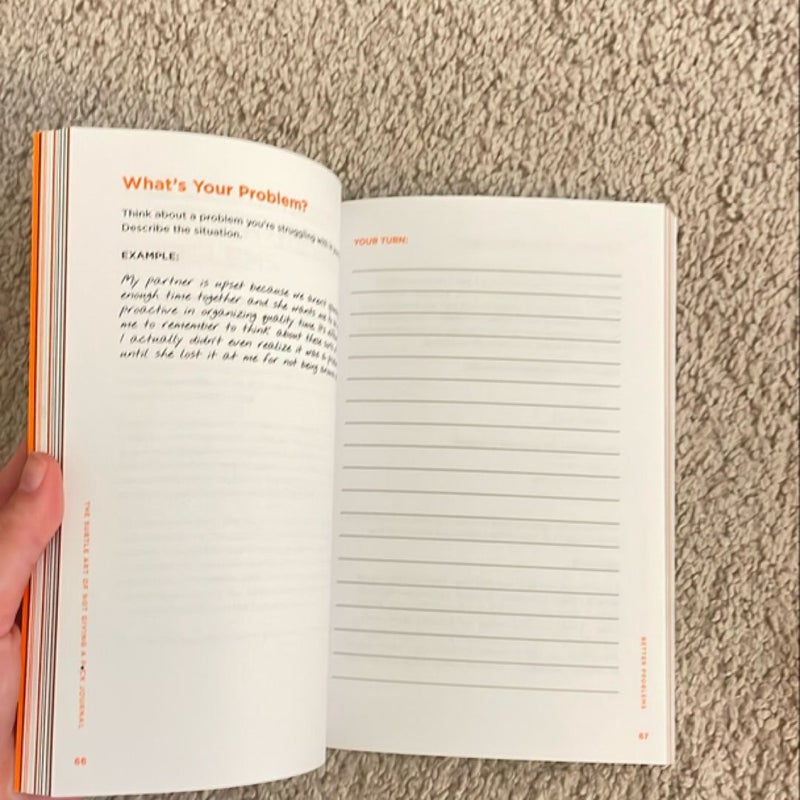 What's Your Problem?
Think about a problem you're struggling with
Describe the situation.
EXAMPLE:
My partner is upset because we aren't
enough time together and she wants me
proactive in organizing quality time. It's
me to remember to think about these
I actually didn't even realize it was a
until she lost it at me for not being
THE SUBTLE ART OF NOT GIVING A F*CK JOURNAL
66
YOUR TURN:
BETTER PROBLEMS
67